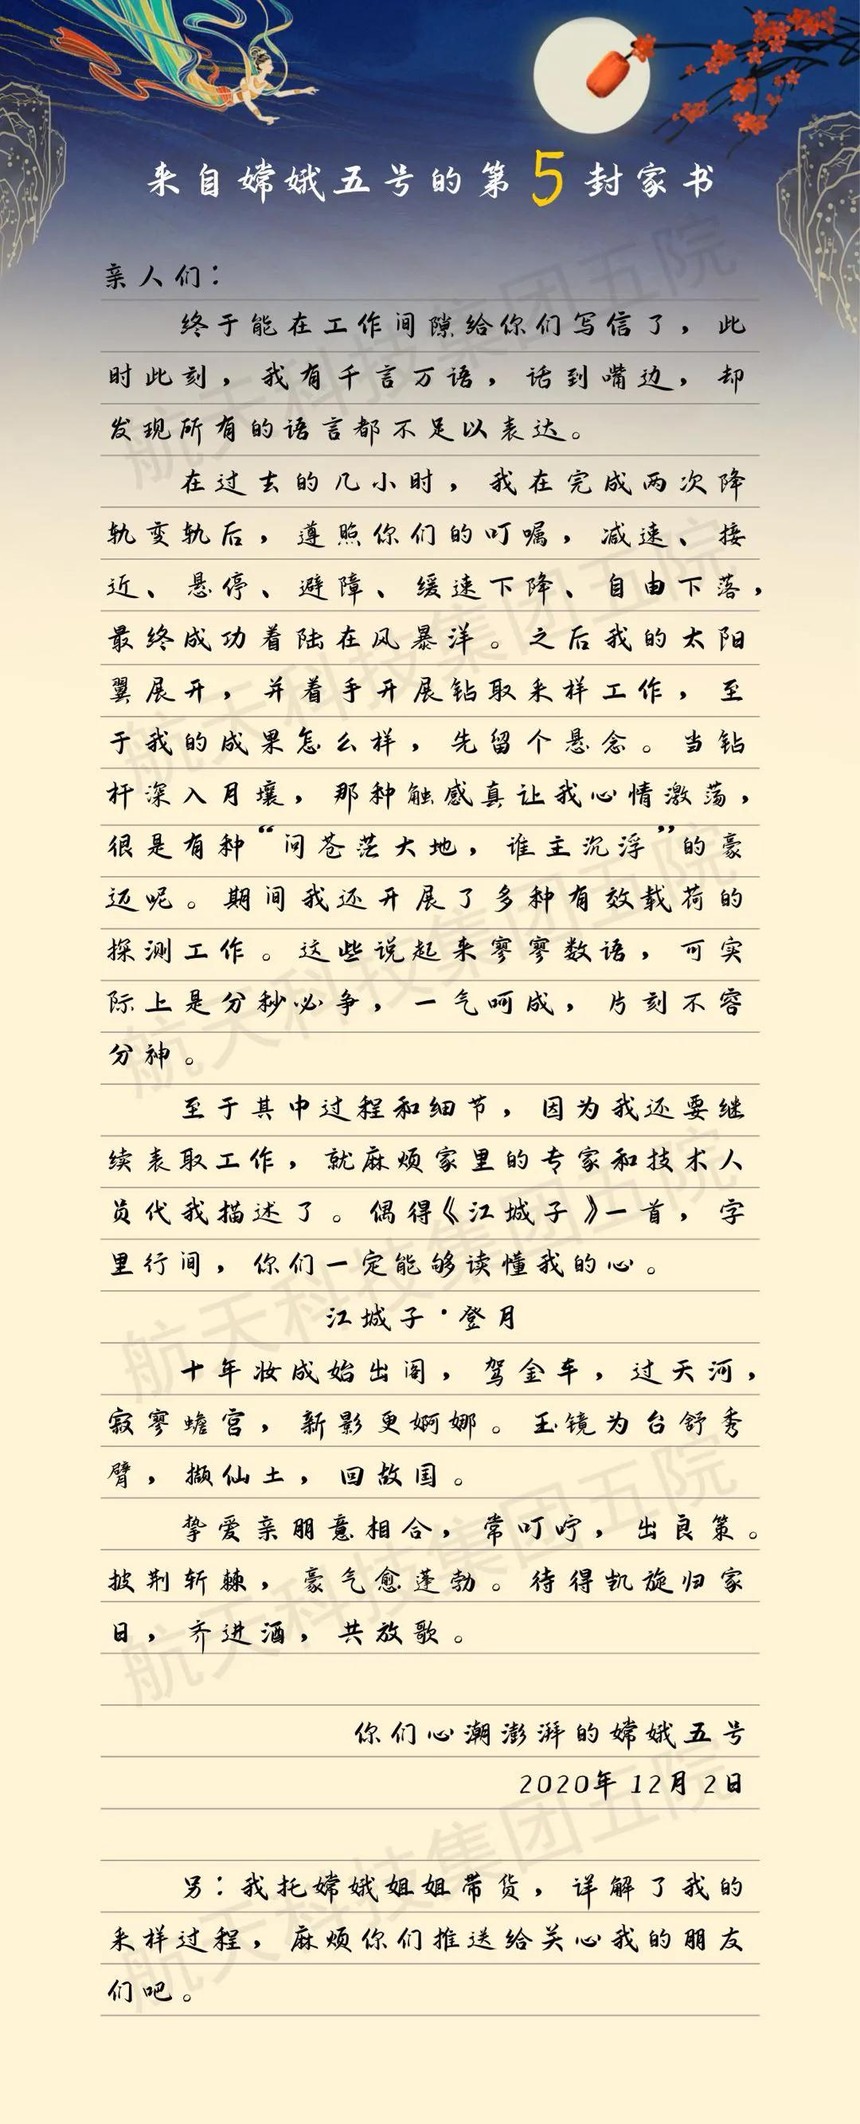 来自嫦娥五号的第5封家书
亲人们：
终于能在工作间隙给你们写信了，此
时此刻，我有千言万语，话到嘴边，却
发现所有的语言都不足以表达。
在过去的几小时，我在完成两次降
轨变轨后，遵照你们的叮嘱，减速、接
近、悬停、避障、缓速下降、自由下落，
最终成功着陆在风暴洋。之后我的太阳
翼展开，并着手开展钻取采样工作，至
于我的成果怎么样，先留个悬念。当钻
杆深入月壤，那种触感真让我心情激荡，
很是有种“问苍茫大地，谁主沉浮”的豪
迈呢。期间我还开展了多种有效载荷的
探测工作。这些说起来寥寥数语，可实
际上是分秒必争，一气呵成，片刻不容
分神。
至于其中过程和细节，因为我还要继
续表取工作，就麻烦家里的专家和技术人
员代我描述了。偶得《江城子》一首，字
里行间，你们一定能够读懂我的心。
江城子·登月
十年妆成始出阁，驾金车，过天河，
寂寥蟾宫，新影更婀娜。玉镜为台舒秀
臂，撷仙土，回故国。
挚爱亲朋意相合，常叮咛，出良策。
披荆斩棘，豪气愈蓬勃。待得凯旋归家
日，齐进酒，共放歌。
你们心潮澎湃的嫦娥五号
2020年12月2日
另：我托嫦娥姐姐带货，详解了我的
采样过程，麻烦你们推送给关心我的朋友
们吧。
航天科技集团五院
航天科技集团五院
航天科技集团五院
航天科技集团五院
航天科技集团五院
航天科技集团五院